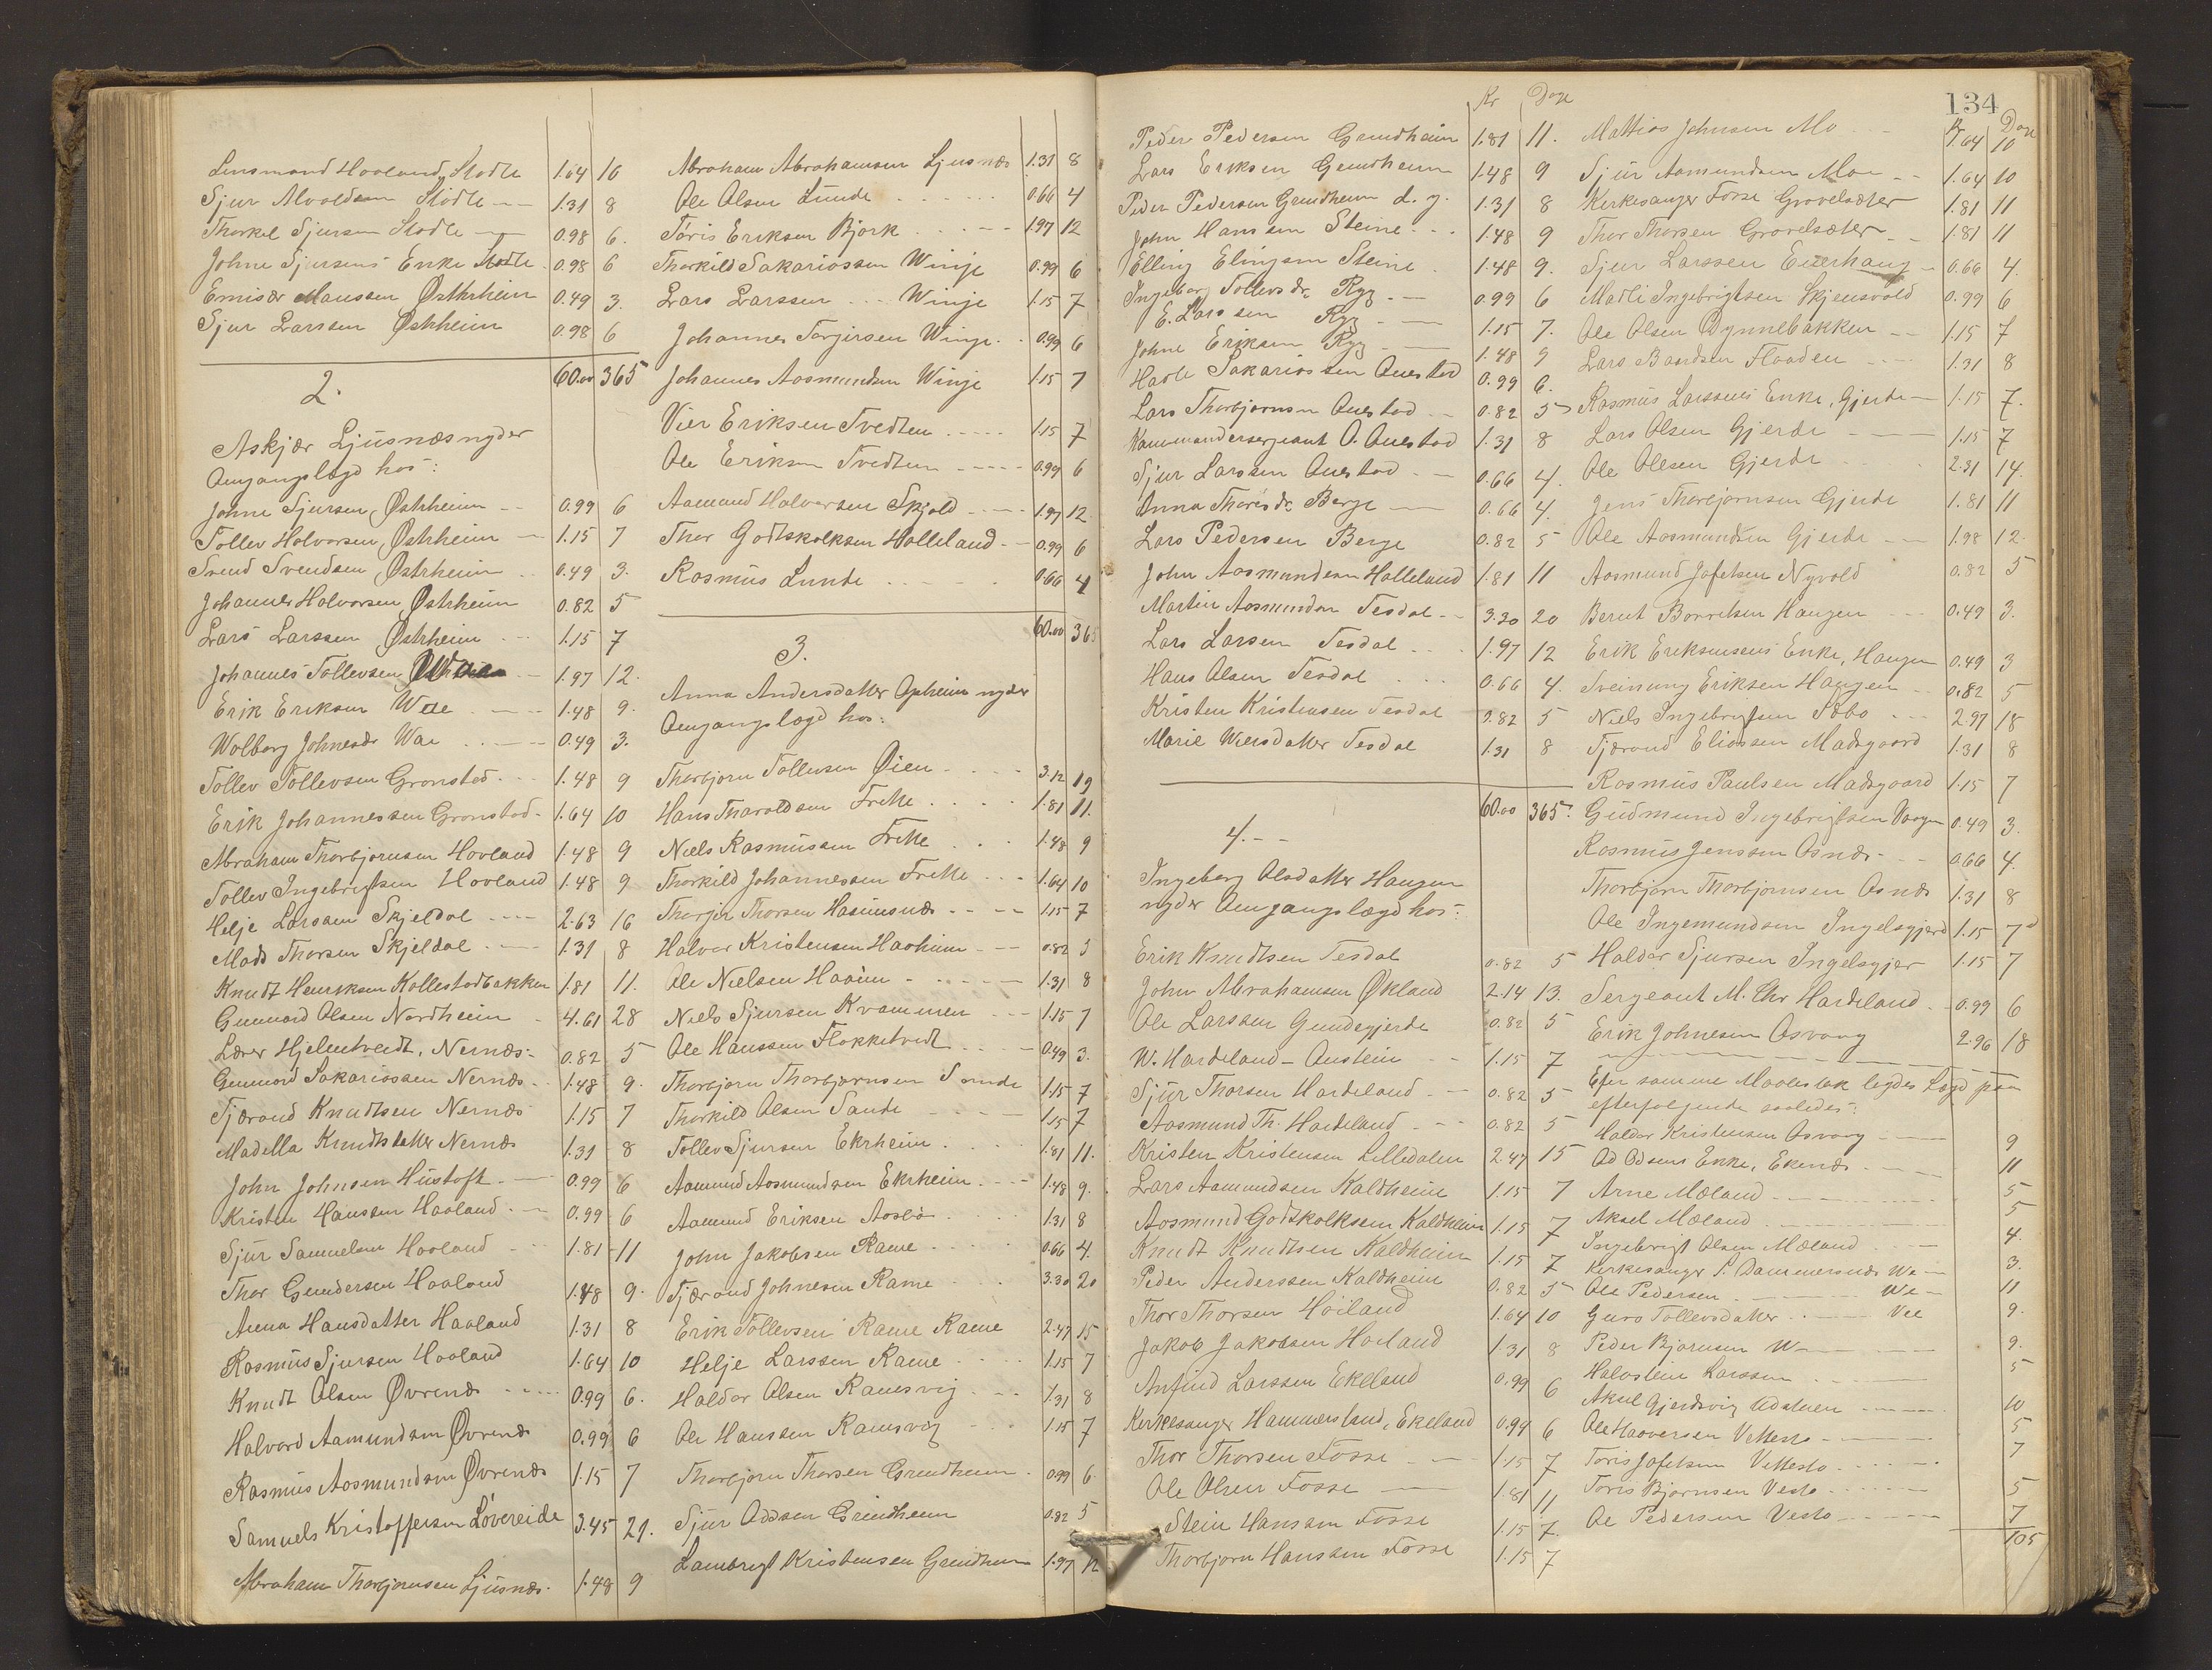 Lensmand Haaland, Stødle 1.64 10
Sjur Alvoldsen Stødle 1.31 8
Thorkel Sjursen Stødle 0.98 6.
Johne Sjursens Enke Stødle 0.98 6
Emisær Hanssen Østrheim 0.49 3.
Sjur Larssen Østrheim 0.98 6
60.00 365
2.
Askjær Ljusnæs nyder
Omgangslægd hos:
Johne Sjursen, Østrheim 0.99 6
Tollev Halvorsen, Østrheim 1.15 7
Svend Svendsen, Østrheim 0.49 3.
Johannes Halvorsen, Østrheim 0.82 5
Lars Larssen Østrheim 1.15 7
Johannes Tollevsen 1.97 12.
Erik Eriksen Wae 1.48 9.
Wolborg Johnesdr Wae 0.49 3.
Tollev Tollevsen Grønstad 1.48 9
Erik Johannessen Grønstad 1.64 10
Abraham Thorbjørnsen Hovland 1.48 9
Tollev Ingebrigtsen Hovland 1.48 9
Helje Larssen Skjeldal 2.63 16
Mads Thorsen Skjeldal 1.31 8
Knudt Henriksen Kollestadbakken 1.81 11.
Gunnard Olsen Nordheim 4.61 28
Lærer Hjelmtveidt, Nernæs 0.82 5
Gunnard Sakariassen Nernæs 1.48 9.
Tjærand Knudtsen Nernæs 1.15 7
Madella Knudtsdatter Nernæs 1.31 8
John Johnsen Hustoft 0.99 6
Kristen Hanssen Haaland 0.99 6
Sjur Samuelsen Haaland 1.81 11
Thor Gundersen Haaland 1.48 9.
Anna Hansdatter Haaland 1.31 8
Rasmus Sjursen Haaland 1.64 10
Knudt Olsen Øvrenæs 0.99 6.
Halvard Aamundsen Øvrenæs 0.99 6
Rasmus Aasmundsen Øvrenæs 1.15 7
Samuels Kristoffersen Løvereide 3.45 21.
Abraham Thorbjørnsen Ljusnæs 1.48 9
Abraham Abrahamsen Ljusnæs 1.31 8
Ole Olsen Lunde 0.66 4
Tøris Eriksen Bjørk 1.97 12
Thorkild Sakariassen Winje 0.99 6
Lars Larssen Winje 1.15 7
Johannes Torgirsen Winje 0.99 6
Johannes Aasmundsen Winje 1.15 7
Vier Eriksen Tvedten 1.15 7
Ole Eriksen Tvedten 0.99 6
Aamund Halvorsen Skjold 1.97 12
Thor Godtskalksen Halleland 0.99 6
Rasmus Lunde 0.66 4
60.00 365
3.
Anna Andersdatter Opheim nyder
Omgangslægd hos:
Thorbjørn Tollevsen Øien 3.12 19
Hans Tharaldsen Frette 1.81 11.
Niels Rasmussen Frette 1.48 9
Thorkild Johannessen Frette 1.64 10
Thorgir Thorsen Hasumsnæs 1.15 7
Halvor Kristensen Haaheim 0.82 5
Ole Nielsen Haaim 1.31 8
Niels Sjursen Kvammen 1.15 7
Ole Hanssen Flokketvedt 0.49 3.
Thorbjørn Thorbjørnsen Sande 1.15 7
Thorkild Olsen Sande 1.15 7
Tollev Sjursen Ekrheim 1.81 11.
Aamund Aasmundsen Ekrheim 1.48 9.
Aamund Eriksen Aasbø 1.31 8
John Jakobsen Rame 0.66 4.
Tjærand Johnesen Rame 3.30 20
Erik Tollevsen Rame Rame 2.47 15
Helje Larssen Rame 1.15 7
Haldor Olsen Ramesvig 1.31 8
Ole Hanssen Ramsvig 1.15 7
Thorbjørn Thorsen Grindheim 0.99 6
Sjur Oddsen Grindheim 0.82 5
Lambrigt Kristensen Grindheim 1.97 12
134
Kr Dage
Peder Pedersen Grindheim 1.81 11.
Lars Eriksen Grindheim 1.48 9
Peder Pedersen Grindheim d. y. 1.31 8
John Hanssen Steine 1.48 9
Elling Elingsen Steine 1.48 9.
Ingeborg Tollevsdr. Ryg 0.99 6
E. Larssen Ryg 1.15 7.
Johne Eriksen Ryg 1.48 9
Hadle Sakariassen Austad 0.99 6.
Lars Thorbjørnsen Austad 0.82 5
Kommandersergeant O. Austad 1.31 8
Sjur Larssen Austad 0.66 4.
Anna Thoresdr. Berge 0.66 4.
Lars Pedersen Berge 0.82 5
John Aasmundsen Halleland 1.81 11
Martin Aasmundsen Tesdal 3.30 20
Lars Larsen Tesdal 1.97 12
Hans Olsen Tesdal 0.66 4.
Kristen Kristensen Tesdal 0.82 5
Marie Wiersdatter Tesdal 1.31 8
60.00 365.
4.
Ingeborg Olsdatter Haugen
nyder Omgangslægd hos:
Erik Knudtsen Tesdal 0.82 5
John Abrahamsen Økland 2.14 13.
Ole Larssen Gundegjerde 0.82 5
W. Hardeland - Austein 1.15 7
Sjur Thorsen Hardeland 0.82 5
Aasmund Th. Hardeland 0.82 5
Kristen Kristensen Lilledalen 2.47 15
Lars Aamundsen Kaldheim 1.15 7
Aasmund Godtskalksen Kaldheim 1.15 7
Knudt Knudtsen Kaldheim 1.15 7
Peder Anderssen Kaldheim 0.82 5
Thor Thorsen Høiland 1.64 10
Jakob Jakobsen Høiland 1.31 8
Anfind Larssen Ekeland 0.99 6
Kirkesanger Hammersland, Ekeland 0.99 6
Thor Thorsen Fosse 1.15 7
Ole Olsen Fosse 1.81 11
Stein Hanssen Fosse 1.15 7.
Thorbjørn Hanssen Fosse 1.15 7
Kr Dage
Mathias Johnsen Mo 1.64 10
Sjur Aamundsen Moe 1.64 10
Kirkesanger Fosse Grovelsæter 1.81 11
Thor Thorsen Grovelsæter 1.81 11
Sjur Larssen Eierhaug 0.66 4.
Madli Ingebrigtsen Skjensvold 0.99 6
Ole Olsen Dynnebakken 1.15 7
Lars Baardsen Flaaden 1.31 8
Rasmus Larssens Enke, Gjerde 1.15 7.
Lars Olsen Gjerde 1.15 7
Ole Olesen Gjerde 2.31 14.
Jens Thorbjørnsen Gjerde 1.81 11
Ole Aasmundsen Gjerde 1.98 12.
Aasmund Jofelsen Nyvold 0.82 5
Bernt Borretsen Haugen 0.49 3.
Erik Eriksensens Enke, Haugen 0.49 3
Sveinung Eriksen Haugen 0.82 5
Niels Ingebrigtsen Søbø 2.97 18
Tjærand Eliassen Madsgaard 1.31 8
Rasmus Paulsen Madsgaard 1.15 7
Gudmund Ingebrigtsen Vaagen 0.49 3.
Rasmus Jenssen Osnæs 0.66 4.
Thorbjørn Thorbjørnsen Osnæs 1.31 8
Ole Ingemundsen Ingelsgjerd 1.15 7
Haldor Sjursen Ingelsgjer 1.15 7
Sergeant M. Chr Hardeland 0.99 6
Erik Johnesen Osvaag 2.96 18
Efter samme Maalestok lægdes Lægd paa
efterfølgende saaledes:
Haldor Kristensen Osvaag 9
Od Odsens Enke, Ekenæs 11
Arne Mæland 5
Aksel Mæland 5
Ingebrigt Olsen Mæland 4.
Kirkesanger S. Dammersnæs We 3.
Ole Pedersen We 11
Guro Tollevsdatter Vee 9.
Peder Bjørnsen W 9.
Halvstein Larssen 5
Aksel Gjerdsvig Udatuen 10
Ole Haaversen Vettestø 5
Toris Jofelsen Vettestø 7
Toris Bjørnsen Vestø 5
Ole Pedersen Vestø 7
105